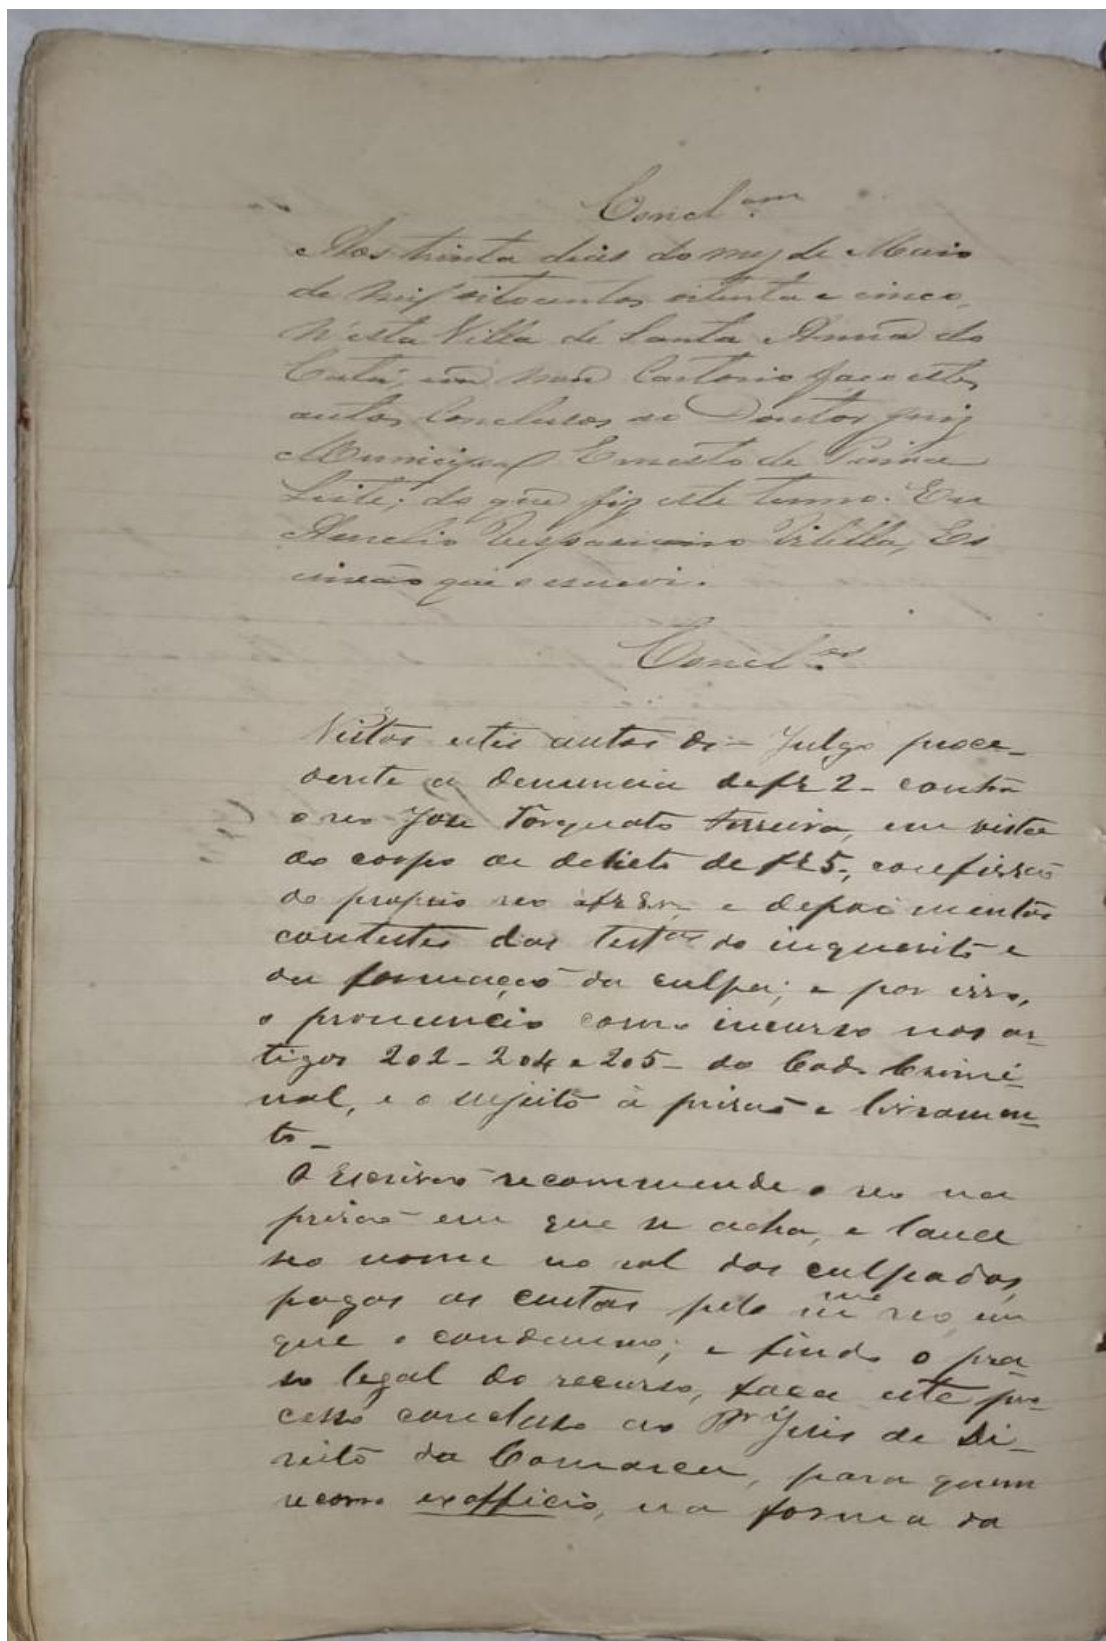 Concl.am
Aos trinta dias do mez de Maio
de mil oitocentos oitenta e cinco,
n'esta Villa de Santa Anna do
Catú, em meu Cartorio faço estes
autos Conclusos ao Doutor Juiz
Municipal Ernesto de
Leite; do que fiz este termo. Eu
Aurelio Vespasiano Vilella, Es
crivão que o escrevi.
Concl.os
Vistos estes autos di- Julgo proce-
dente a denuncia de fs 2- contra
o reo José Torquato Ferreira, em vista
do corpo de delicto de fs 5-, confissão
do proprio reo á fs e depoimentos
contestes das testas do inquerito e
da formação da culpa; e por isso,
o pronuncio como incurso nos ar-
tigos 202- 204 e 205- do Cod. Crimi-
nal, e o sujeito á prisão e livramen-
to_
O Escrivão recommende o reo na
prisão em que se acha, e lance
seo nome no rol dos culpados,
pagas as custas pelo mme reo, em
que o condemno; e findo o pra
so legal do recurso, faça este pro-
cesso concluso ao Dr Juis de Di-
reito da Comarca, para quem
recorro exofficio, na forma da